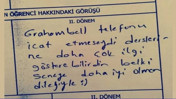 ÖĞRENCİ HAKKINDAKİ GÖRÜŞÜ
II. DÖNEM
Grahambell telefonu
icat etmeseydi dersleri-
ne daha çok ilgi
gösterebilirdin belki
Seneye daha iyi olman
dileğiyle :)
II. DÖNEM